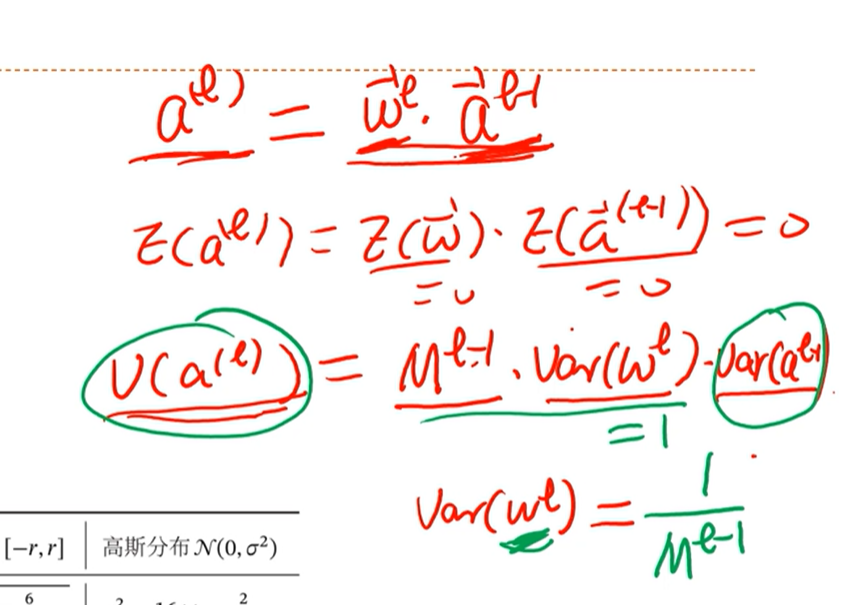 a^(l) = w⃗^l · a⃗^l-1
E(a^(l)) = E(w⃗) · E(a⃗^(l-1)) = 0
= 0 = 0
V(a^(l)) = M^l-1 · Var(w^l) · Var(a^l-1)
= 1
Var(w^l) = 1/M^l-1
[−r, r] 高斯分布 𝒩(0, σ²)
6 2 2